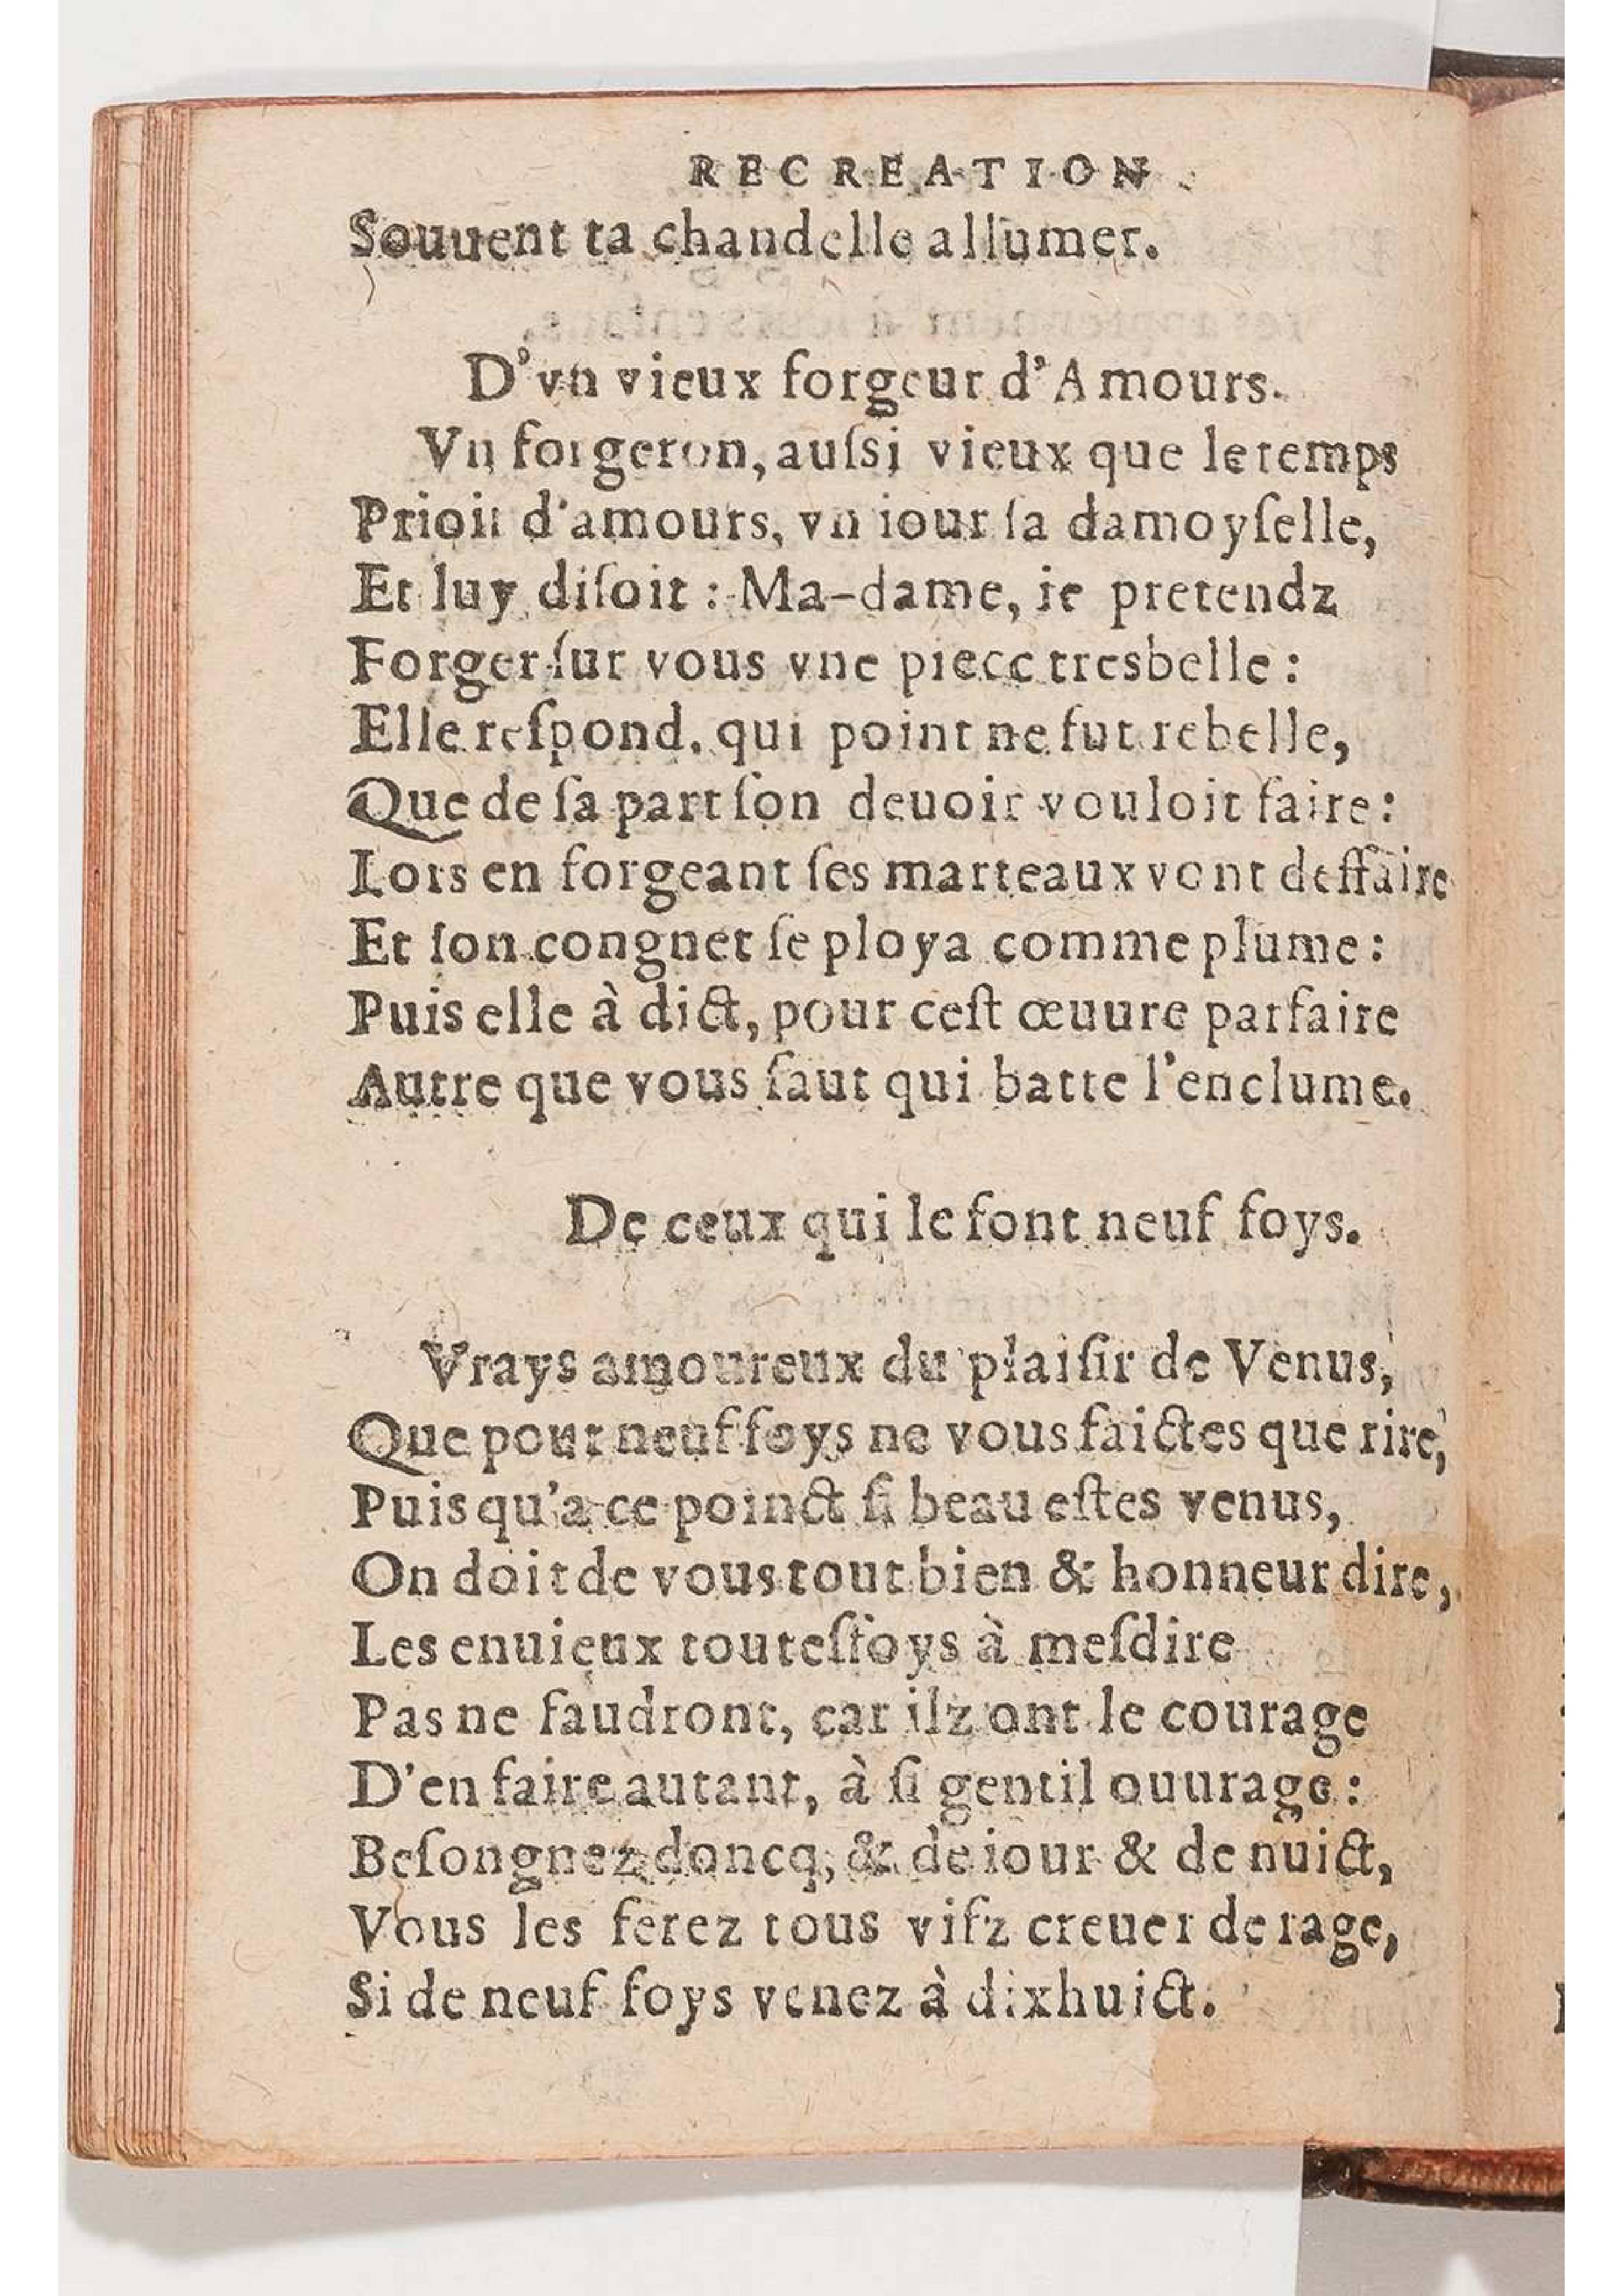 RECREATION
Souuent ta chandelle allumer.
D'vn vieux forgeur d'Amours.
Vn forgeron, auſsi vieux que le temps
Prioit d'amours, vn iour ſa damoyſelle,
Et luy diſoit : Ma-dame, ie pretendz
Forger ſur vous vne piece tresbelle :
Elle reſpond, qui point ne fut rebelle,
Que de ſa part ſon deuoir vouloit faire :
Lors en forgeant ſes marteaux vont deffaire
Et ſon congnet ſe ploya comme plume :
Puis elle à dict, pour ceſt œuure parfaire
Autre que vous faut qui batte l'enclume.
De ceux qui le font neuf foys.
Vrays amoureux du plaiſir de Venus,
Que pour neuf foys ne vous faictes que rire,
Puis qu'a ce poinct ſi beau eſtes venus,
On doit de vous tout bien & honneur dire,
Les enuieux touteſfoys à meſdire
Pas ne faudront, car ilz ont le courage
D'en faire autant, à ſi gentil ouurage :
Beſongnez doncq, & de iour & de nuict,
Vous les ferez tous vifz creuer de rage,
Si de neuf foys venez à dixhuict.